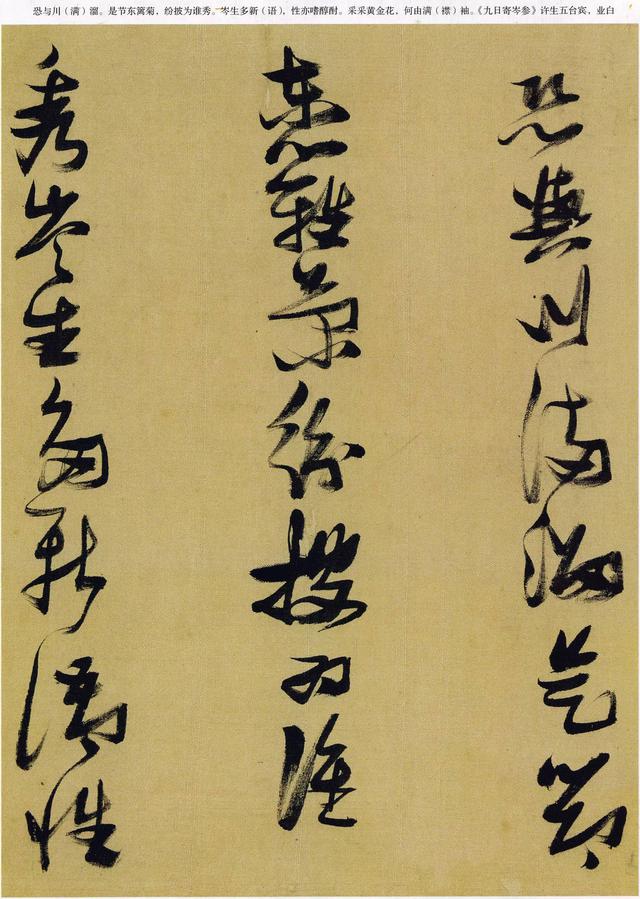 恐与川（满）溜。是节东篱菊，纷披为谁秀。岑生多新（语），性亦嗜醇酎。采采黄金花，何由满（襟）袖。《九日寄岑参》许生五台宾，业白
恐與川滿溜是節
東籬菊紛披为誰
秀岑生多新語性